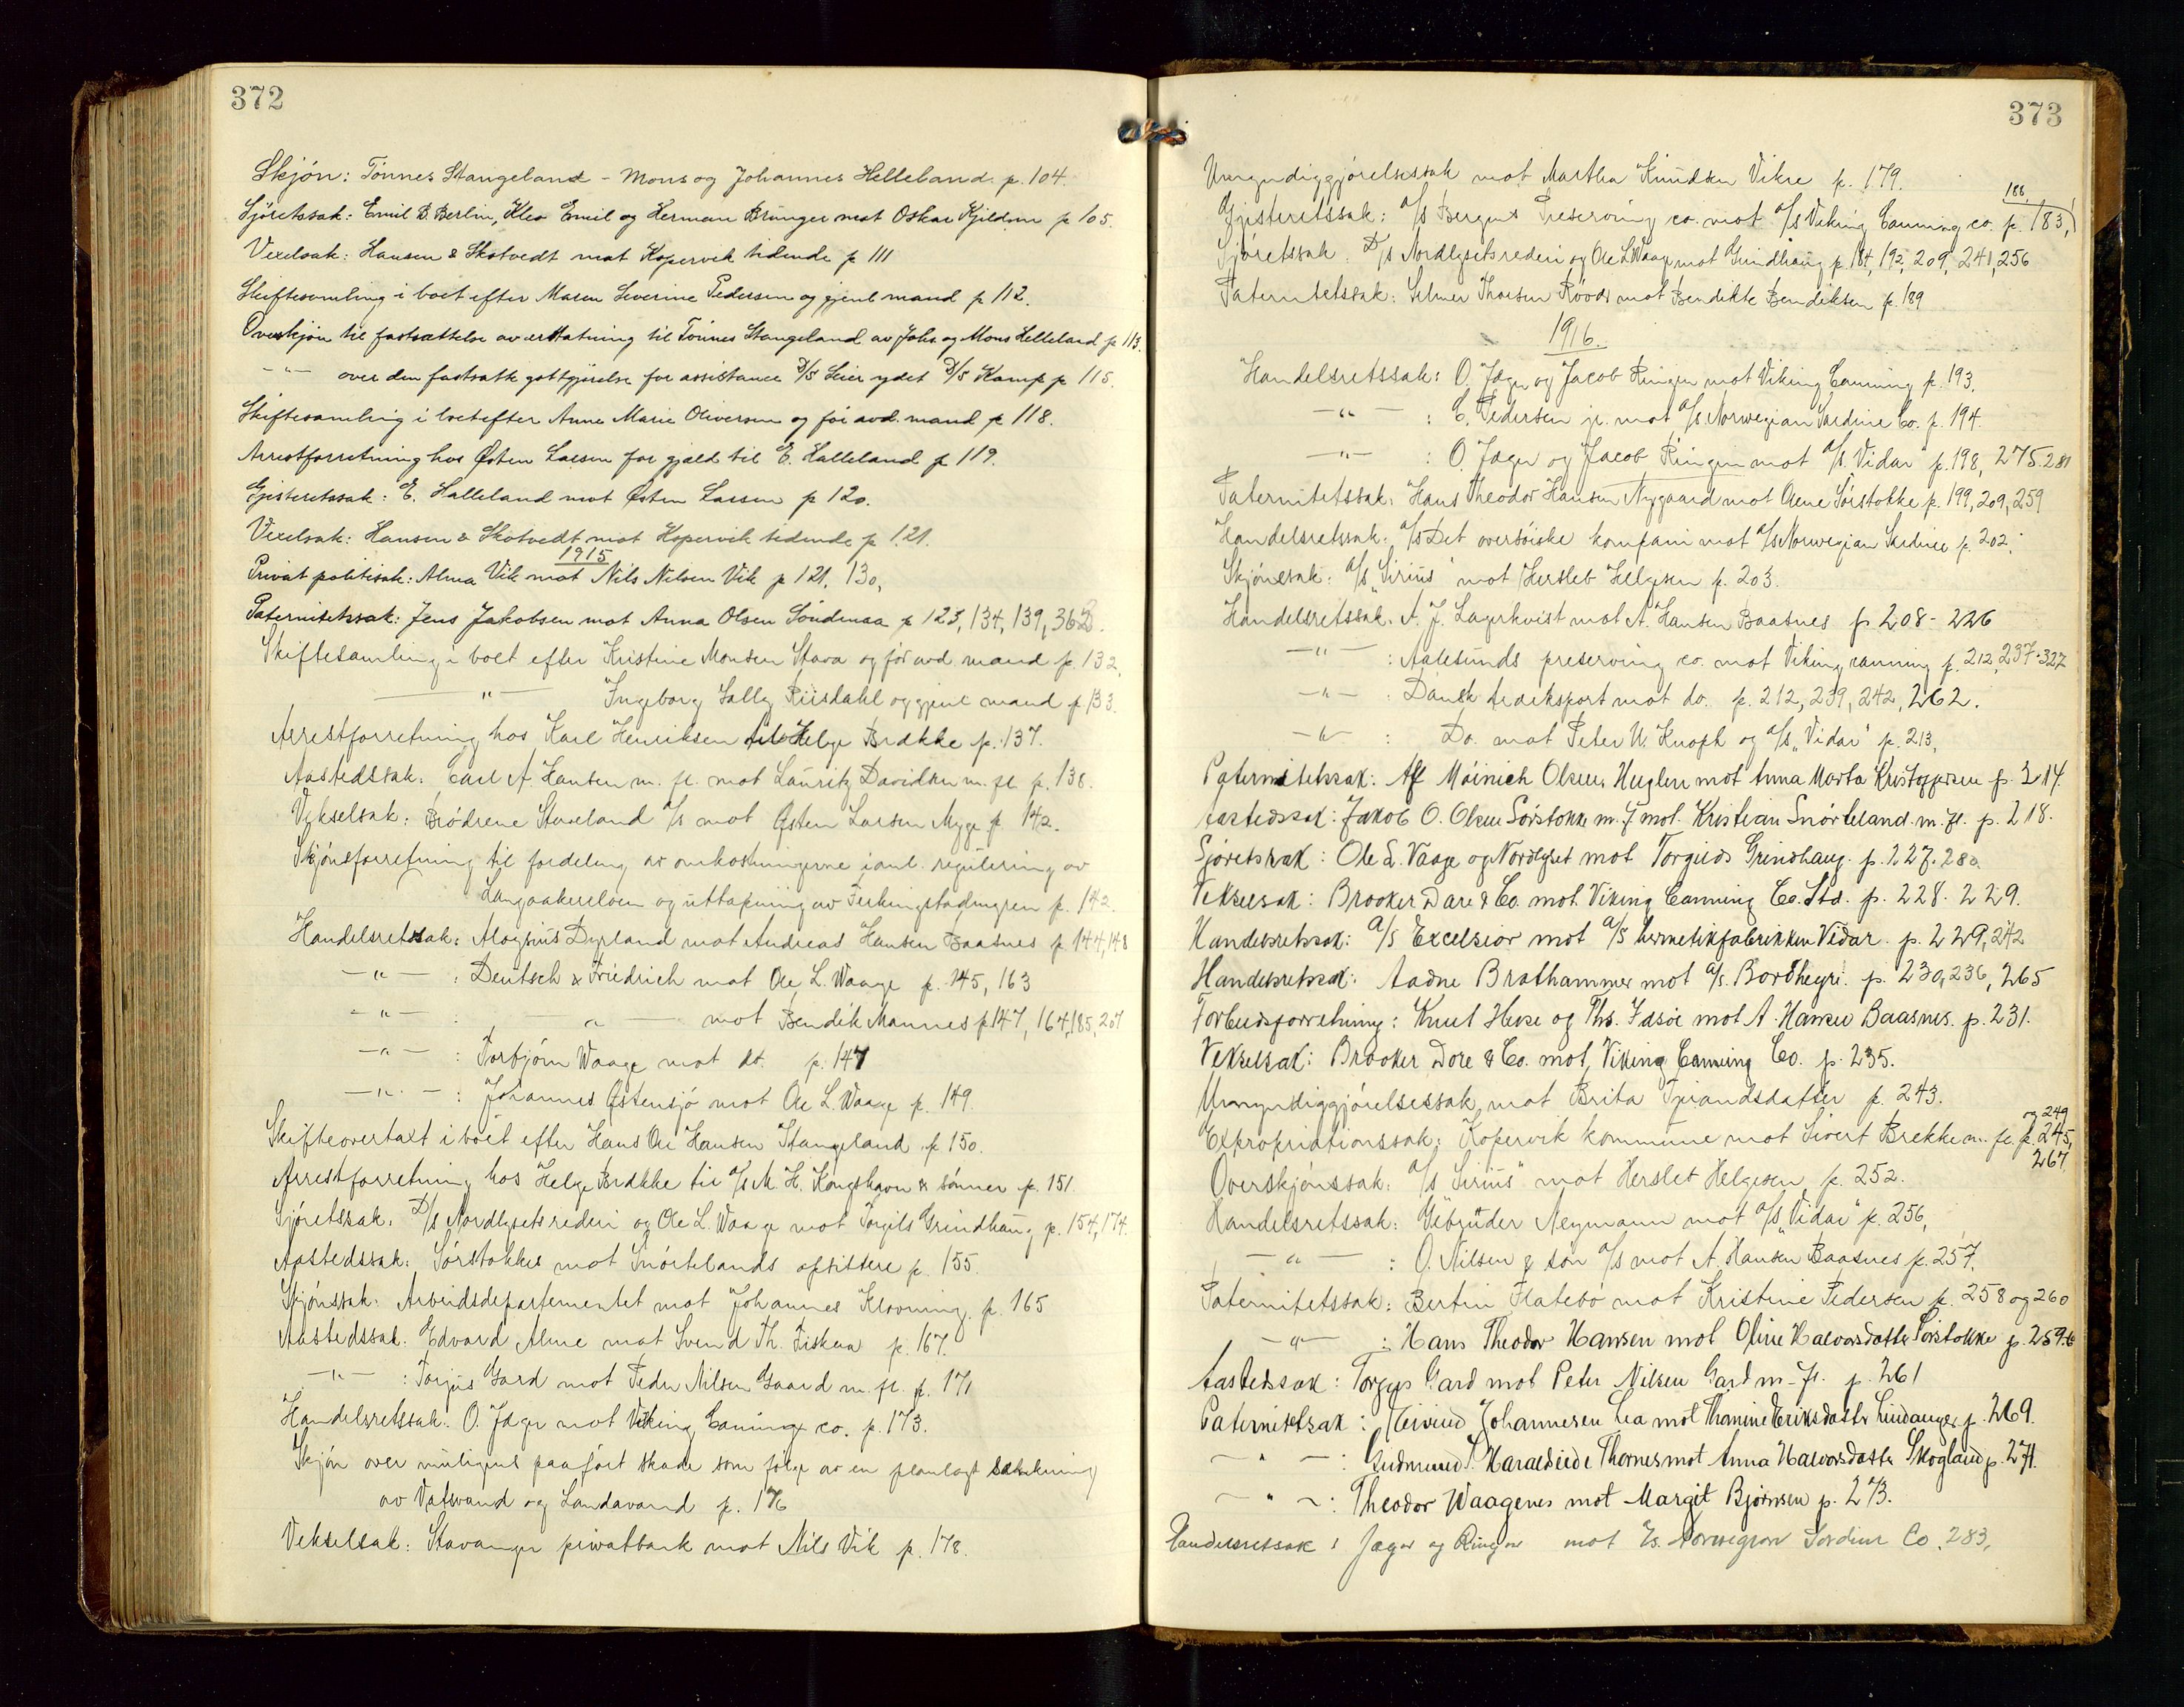 372
Skjön: Tönnes Stangeland - Mons og Johannes Helleland p. 104.
Sjöretssak: Emil B. Berlin, Kleo Emil og Herman Brünger mot Oskar Kjeldsen p 105.
Vexelsak: Hansen & Skotvedt mot Kopervik tidende p 111
Skiftesamling i boet efter Maren Severine Pedersen og gjenl mand p 112.
Overskjön til fastsættelse av erstatning til Tönnes Stangeland av Johs og Mons Helleland p 113.
-"- over den fastsatte gottgjörelse for assistance D/S Seier ydet D/S Kamp p 115.
Skiftesamling i boet efter Anne Marie Oliversen og för avd. mand p 118.
Arrestforretning hos Østen Larsen for gjæld til E. Halleland p 119.
Gjesteretssak: E. Halleland mot Østen Larsen p 120.
Vexelsak: Hansen & Skotvedt mot Kopervik tidende p 121.
1915
Privat politisak: Alma Vik mot Nils Nilsen Vik p 121, 130,
Paternitetssak: Jens Jakobsen mot Anna Olsen Söndenaa p 123, 134, 139, 362.
Skiftesamling i boet efter Kristine Monsen Stava og för avd. mand p. 132.
-"- Ingeborg Sally Riisdahl og gjenl mand p 133.
Arrestforretning hos Karl Henriksen til Helge Brække p. 137.
Aastedssak: Carl A. Hansen m. fl. mot Lauritz Davidsen m. fl. p. 138.
Vekselsak: Brödrene Stueland A/S mot Østen Larsen Myge p. 142.
Skjönsforretning til fordeling av omkostningerne i anl. regulering av
Langaakerelven og uttapning av Ferkingstadmyren p. 142.
Handelsretssak: Aloysius Dyrland mot Andreas Hansen Baasnes p. 144, 148
-"- : Deutsch & Friedrich mot Ole L. Waage p. 145, 163
-"- : -"- mot Bendik Mannes p 147, 164, 185, 207
-"- : Torbjörn Waage mot do. p. 147
-"- : Johannes Østensjö mot Ole L. Waage p. 149.
Skifteovertaxt i boet efter Hans Ole Hansen Stangeland p. 150.
Arrestforretning hos Helge Brække til A/S M. H. Kongshavn & sönner p. 151.
Sjöretssak: D/S Nordlysets rederi og Ole L. Waage mot Torgils Grindhaug p. 154, 174.
Aastedssak: Sörstokkes mot Snörtelands opsittere p. 155.
Skjönssak: Arbeidsdepartementet mot Johannes Klovning p. 165
Aastedssak: Edvard Alne mot Svend Th. Fiskaa p. 167.
-"- : Torjus Gard mot Peder Nilsen Gaard m. fl. p. 171
Handelsretssak: O. Jæger mot Viking Caning co. p. 173.
Skjön over muligens paafört skade som fölge av en planlagt sænkning
av Vatsvand og Landavand p. 176
Vekselsak: Stavanger privatbank mot Nils Vik p. 178.
373
Umyndiggjörelsessak mot Martha Knudsen Vikre p. 179.
188.
Gjesteretssak: A/S Bergens Preserving co. mot A/S Viking Canning co. p. 183,
Sjöretssak: D/S Nordlysets rederi og Ole L. Waage mot Grindhaug p. 184, 192, 209, 241, 256
Paternitetssak: Selmer Thorsen Röod mot Bendikte Bendiksen p. 189
1916.
Handelsretssak: O. Jæger og Jacob Ringen mot Viking Canning p. 193.
-"- : E. Pedersen jr. mot A/S Norwegian Sardine Co. p. 194.
-"- : O. Jæger og Jacob Ringen mot A/S "Vidar" p. 198, 275. 281
Paternitetssak: Hans Theodor Hansen Nygaard mot Oline Sörstokke p. 199, 209, 259
Handelsretssak: A/S Det oversöiske kompani mot A/S Norwegian Sardine p. 202.
Skjönssak: A/S "Sirius" mot Hersleb Helgesen p. 203.
Handelsretssak: A. J. Lagerkvist mot A. Hansen Baasnes p. 208 - 226
-"- : Aalesunds preserving co. mot Viking canning p. 212, 237 - 327
-"- : Dansk fedeksport mot do. p. 212, 239, 242, 262.
-"- : Do. mot Peter W. Knoph og A/S "Vidar" p. 213,
Paternitetssak: Alf Möinich Olsen Huglen mot Anna Marta Kristoffersen p. 214.
Aastedssak: Jakob O. Olsen Sörstokke m. fl mot Kristian Snörteland m. fl. p. 218.
Sjöretssak: Ole L. Vaage og Nordlyset mot Torgils Grindhaug. p. 227. 280
Vekselsak: Brooker Dore & Co. mot Viking Canning Co. Ltd. p. 228. 229.
Handelsretssak: A/S Excelsior mot A/S hermetikfabrikken Vidar. p. 229, 242
Handelsretssak: Aadne Brathammer mot A/S. Bordhegri. p. 230, 236, 265
Forbudsforretning: Knut Heske og Ths. Idsöe mot A. Hansen Baasnes. p. 231.
Vekselsak: Brooker Dore & Co. mot Viking Canning Co. p. 235.
Umyndiggjörelsessak mot Brita Tjerandsdatter p. 243.
og 249
Expropriationssak: Kopervik kommune mot Sivert Brekke m. fl. p. 245,
267.
Overskjönssak: A/S "Sirius" mot Herslet Helgesen p. 252.
Handelsretssak: Gebrüder Neymann mot A/S "Vidar" p. 256,
-"- : O. Nilsen & sön A/S mot A. Hansen Baasnes p. 257.
Paternitetssak: Bertin Flatebö mot Kristine Pedersen p. 258 og 260
-"- : Hans Theodor Hansen mot Oline Halvorsdatter Sörstokke p. 259.
Aastedssak: Torgys Gard mot Peter Nilsen Gard m. fl. p. 261
Paternitetssak: Eivind Johannesen Lea mot Thomine Eriksdatter Lindanger p. 269.
-"- : Gudmund S. Haraldseide Thornes mot Anna Halvorsdatter Skogland p. 271.
-"- : Theodor Waagenes mot Margit Bjørnsen p. 273.
Handelsretssak: Jæger og Ringen mot A/S. Norwegian Sardine Co. 283,